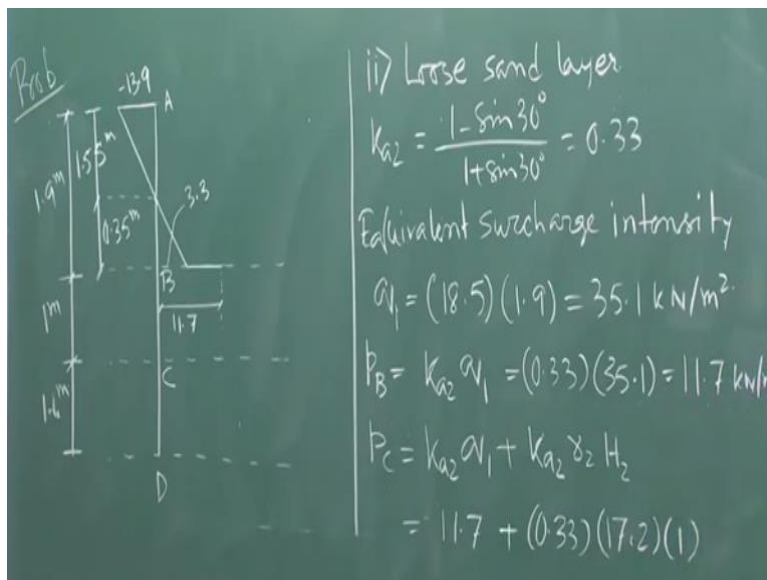 Prob
-13.9
A
1.9m
1.55m
0.35m
3.3
B
11.7
1m
C
1.6m
D
ii) Loose sand layer
Ka2 = 1-Sin30° / 1+Sin30° = 0.33
Equivalent surcharge intensity
q1 = (18.5)(1.9) = 35.1 kN/m².
PB = Ka2 q1 = (0.33)(35.1) = 11.7 kN/m
PC = Ka2 q1 + Ka2 γ2 H2
= 11.7 + (0.33)(17.2)(1)